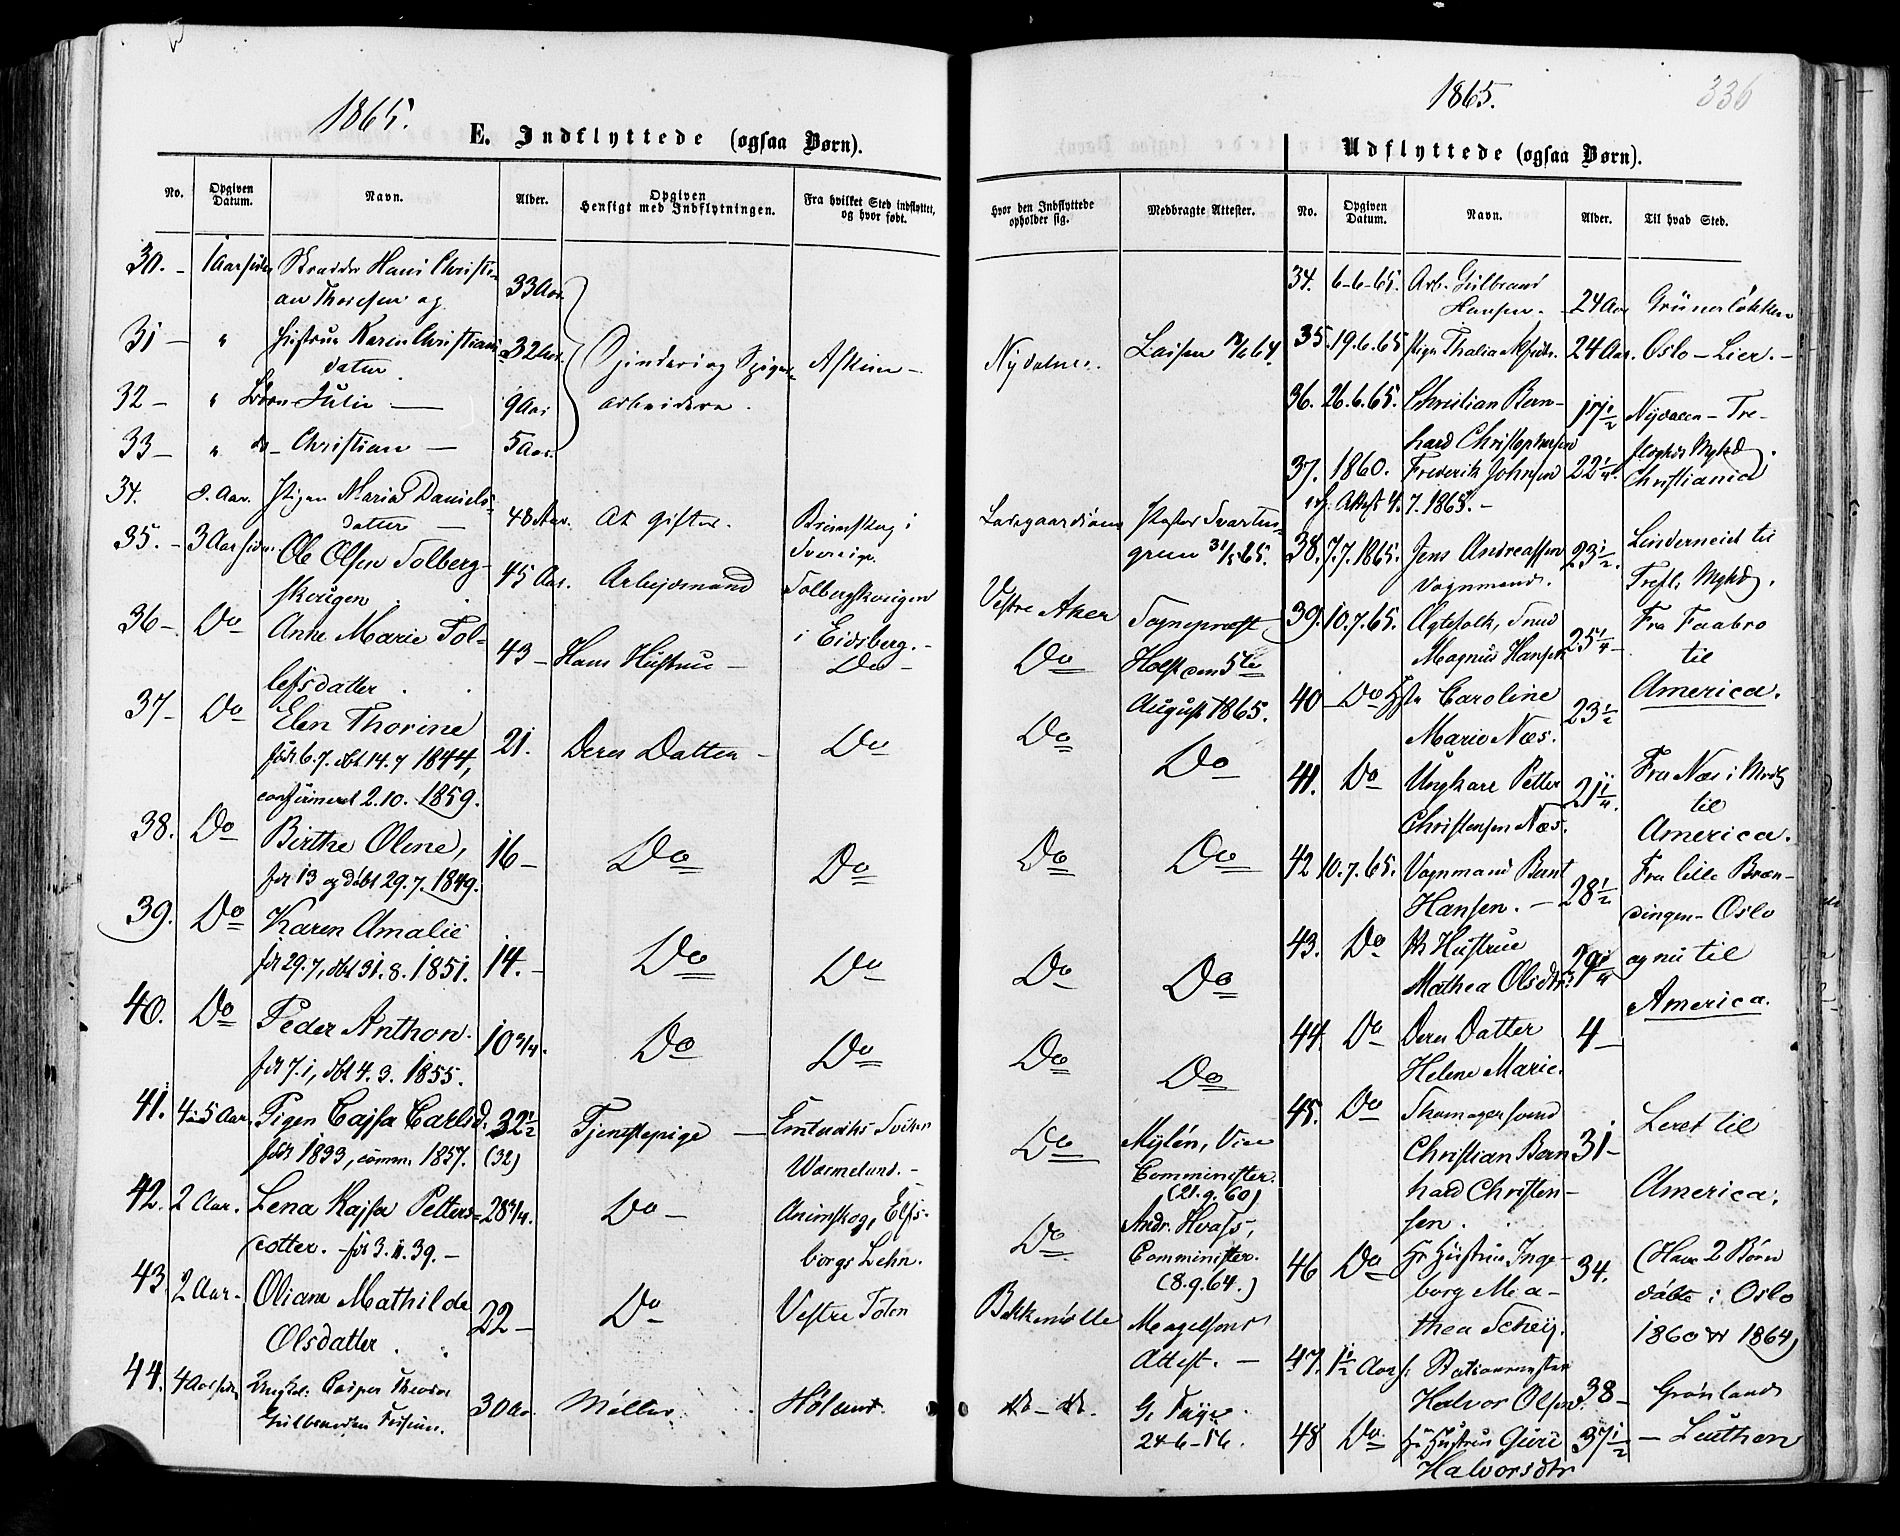 1865.
E. Indflyttede (ogsaa Børn).
No.
Opgiven Datum.
Navn.
Alder.
Opgiven Hensigt med Indflytningen.
Fra hvilket Sted indflyttet, og hvor født.
30. - 1 Aar siden Skrædder Hans Christi-
an Thoresen og 33 Aar.
31 - " Hustrue Karen Christians-
datter 32 Aar. Spinderi og Spiger- Askim -
32 - " Børn Julie - 9 Aar arbeidere.
33 - " do - Christian - 5 Aar.
34. 8. Aar. Pigen Maria Daniels-
datter - 48 Aar. At giftes. Brimskog i
Sverige.
35. - 3 Aar siden Ole Olsen Solberg-
skougen 45 Aar. Arbejdsmand Solbergskougen
i Eidsberg. -
36 - Do Anne Marie Tol-
lefsdatter 43 - Hans Hustrue - Do -
37 - Do Elen Thorine
født 6.7. dbt 14.7 1844, 21. Deres Datter - Do
confirmeret 2.10. 1859.
38. Do Birthe Oline, 16 - Do Do
før 13 og døbt 29.7. 1849.
39. Do Karen Amalie
før 29.7, dbt 31.8. 1851. 14. - Do Do
40. Do Peder Anthon.
før 7.1, dbt 4.3. 1855. 10 3/4. Do Do
41. 4 à 5 Aar. Pigen Cajsa Carlsd. 32 1/2 Tjenstepige -
født 1833, comm. 1857. (32) Wærmeland. -
42. 2 Aar. Lena Kajsa Petters- 28 3/4. Do - Animskog, Elfs-
dotter. - før 3.11.39. - borgs Lehn.
43. 2 Aar. Oliane Mathilde
Olsdatter 22 - Do Vestre Toten
44. 4 Aar siden Ungk: Casper Theodor
Gulbrandsen 30 Aar Møller Høland.
1865.
336
Udflyttede (ogsaa Børn).
Hvor den Indflyttede opholder sig.
Medbragte Attester.
No.
Opgiven Datum.
Navn.
Alder.
Til hvad Sted.
Nydalen.
Ladegaardsøens Pastor
31/5 65.
Vestre Aker Sogneprest
Do Holst den 5te
August 1865.
Do Do
Do Do
Do Do
Do Do
Do Mylén, Vice
Comminister.
(21.9.60)
Do Andr. Hvass,
Comminister.
(8.9.64.)
Bakkemølle Magelsens
Attest. -
do - do. G. Faye
24-6-56.
34. 6-6-65. Arb. Gulbrand
Hansen. - 24 Aar Grünerløkken
35. 19.6.65 Pige Thalia 24 Aar. Oslo - Lier. -
36. 26.6.65. Christian Bern-
hard Christophersen 17 1/2 Nydalen - Tre-
foldigheds
37. 1860. Frederik Johnsen 22 1/4. Christiania
Attest 4. 7. 1865. -
38. 7.7.1865. Jens Andreassen
Vognmand. 23 1/2. Linderneiet til
Trefl: Myhd.
39. 10.7.65. Ægtefolk, Smed
Magnus Hansen 25 1/4 - Fra Faabro
til
40 - Do Hstr Caroline
Marie Næs. 23 1/2 America.
41. Do Ungkarl Petter
Christensen Næs. 21 1/4 Fra Næs i
til
America.
42 10.7.65. Vognmand Bernt
Hansen. - 28 1/2 Fra lille Bræn-
dingen - Oslo
43. Do Hs Hustrue
Mathea Olsdtr. 29 1/4 og nu til
America.
44. Do Deres Datter
Helene Marie. 4 -
45. Do Skomagersvend
Christian Bern
hard Christen-
sen. 31 - Leret til
America.
46 Do Hs Hustrue Inge-
borg Ma-
thea Schey. 34. (Have 2 Børn
døbte i Oslo
1860 & 1864)
47. 1 1/2 Aar s: Stationsmester
Halvor Olsen 38 - Grønland
48 Do. Hs Hustrue Guri
Halvorsdtr 37 1/2 - Leuthen